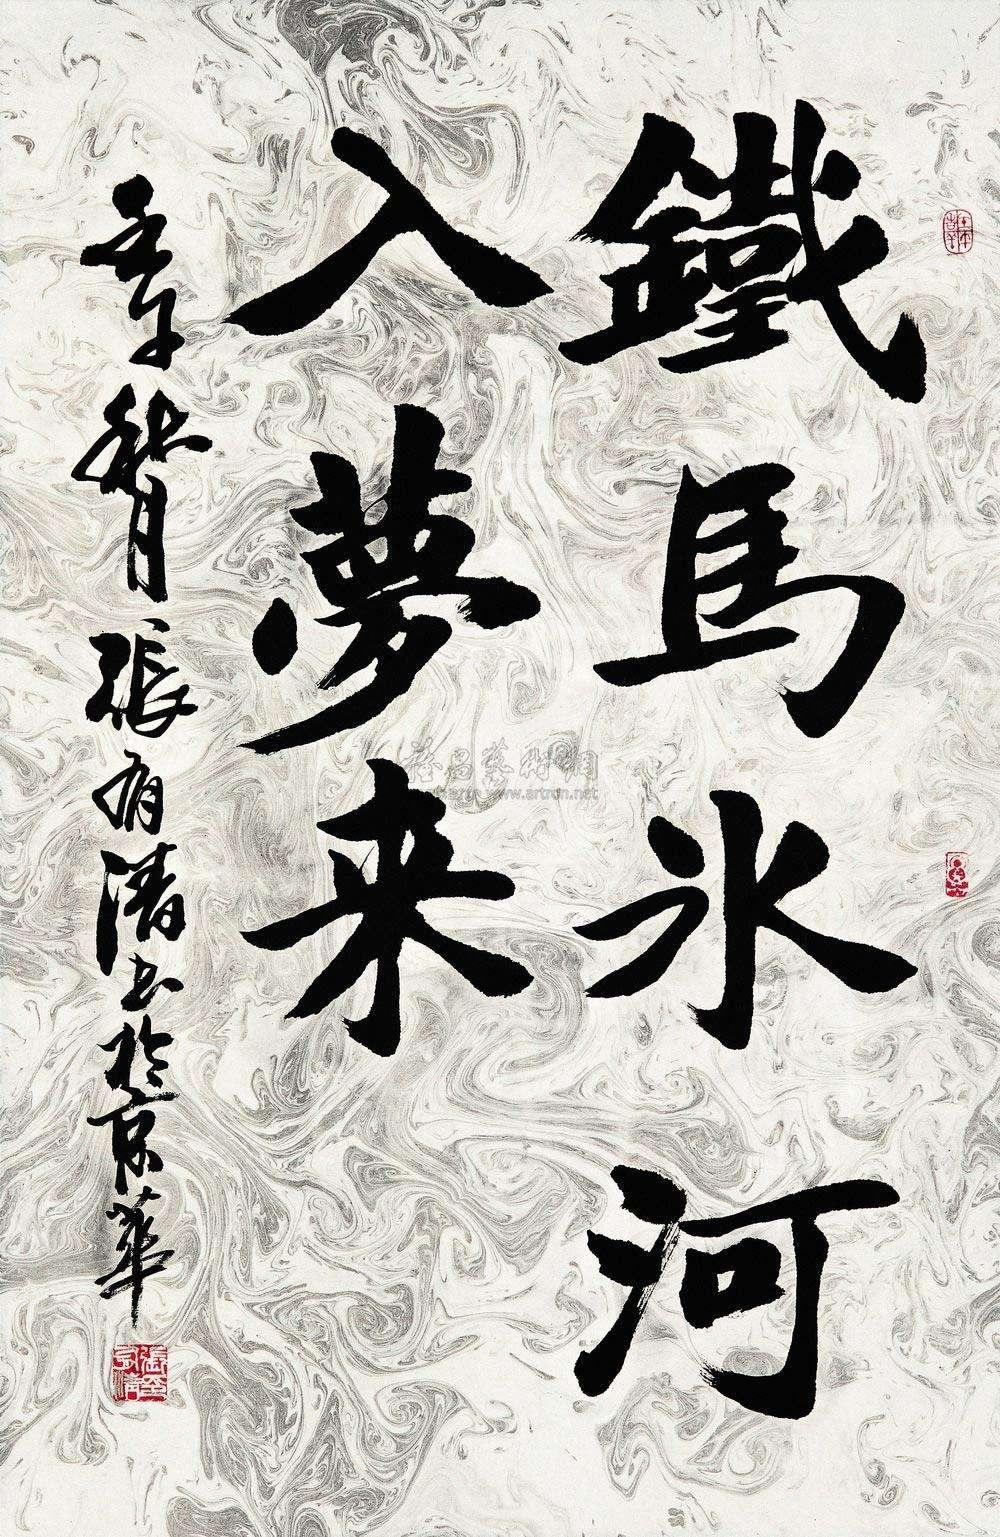 鐵馬冰河
入夢来
壬午秋月張有清书於京華
張有清
雅昌藝術網
www.artron.net